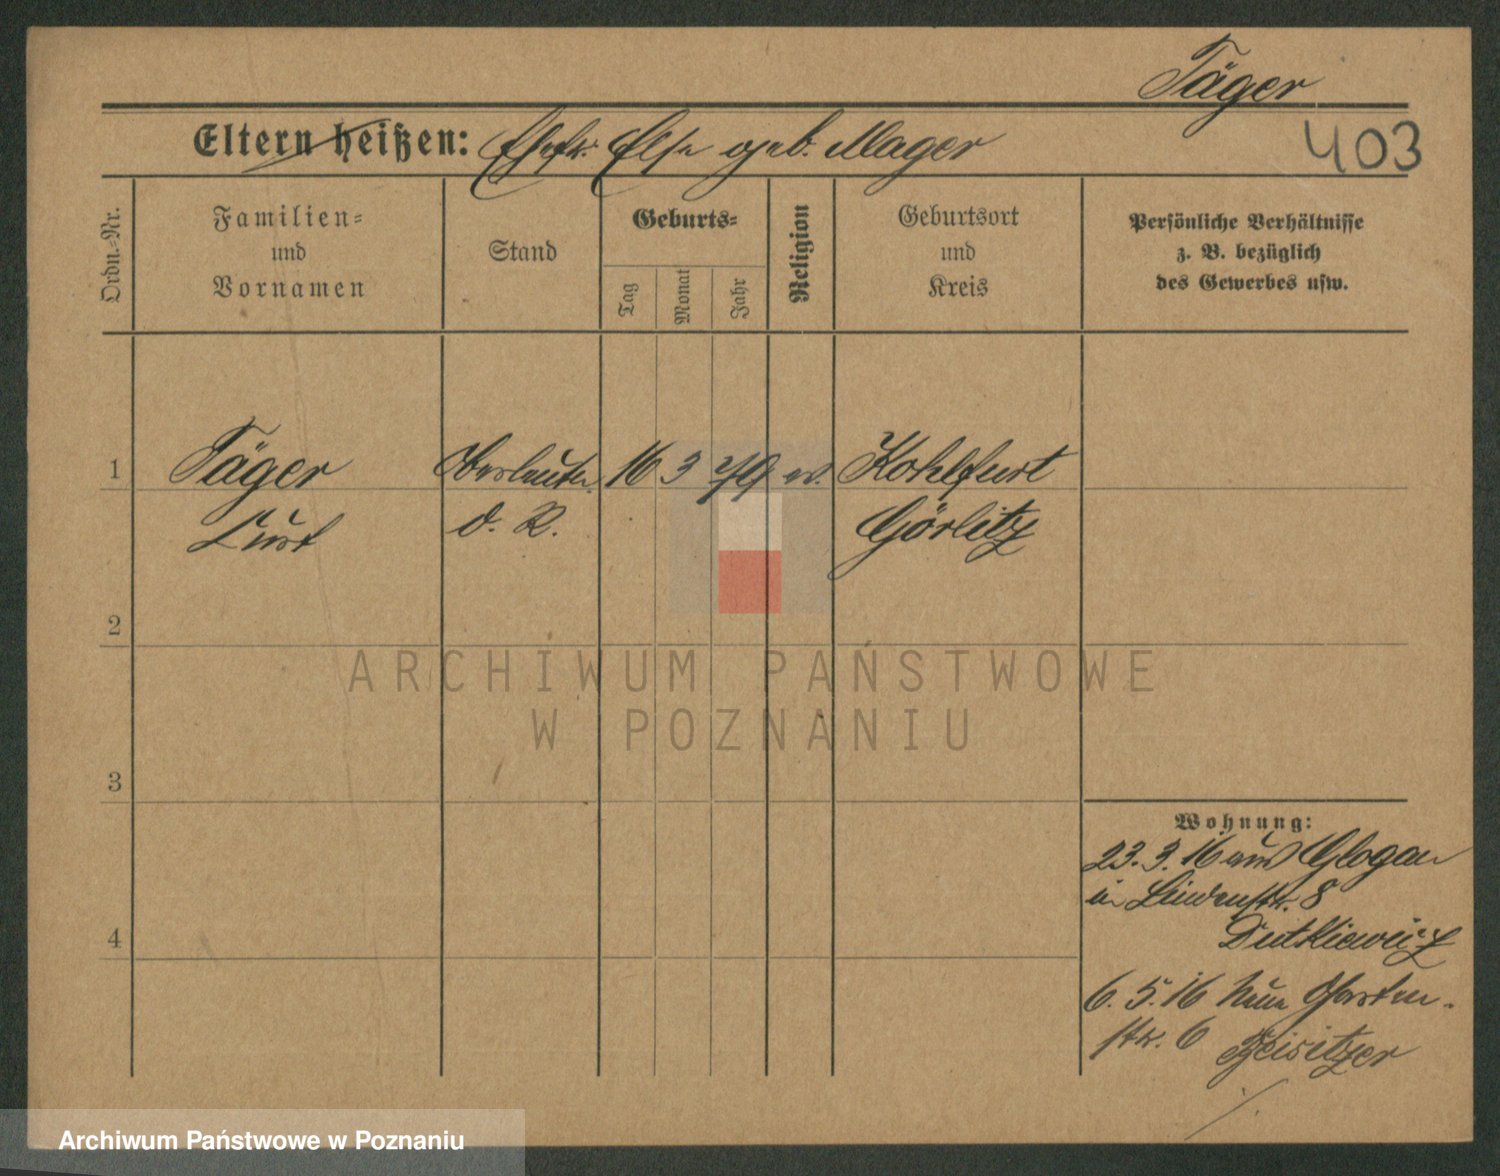 Jäger
Eltern heißen: Ehefr. Else geb. Mager
403
Ordn.-Nr.
Familien-
und
Vornamen
Stand
Geburts-
Tag
Monat
Jahr
Religion
Geburtsort
und
Kreis
Persönliche Verhältnisse
z. B. bezüglich
des Gewerbes usw.
1
Jäger
Kurt
Oberleutn.
d. R.
16
3
79
ev.
Kohlfurt
Görlitz
2
3
4
ARCHIWUM PAŃSTWOWE
W POZNANIU
Wohnung:
23. 3. 16 aus Glogau
in Lindenstr. 8
Dutkiewicz
6. 5. 16 Neue Garten-
str. 6
Archiwum Państwowe w Poznaniu